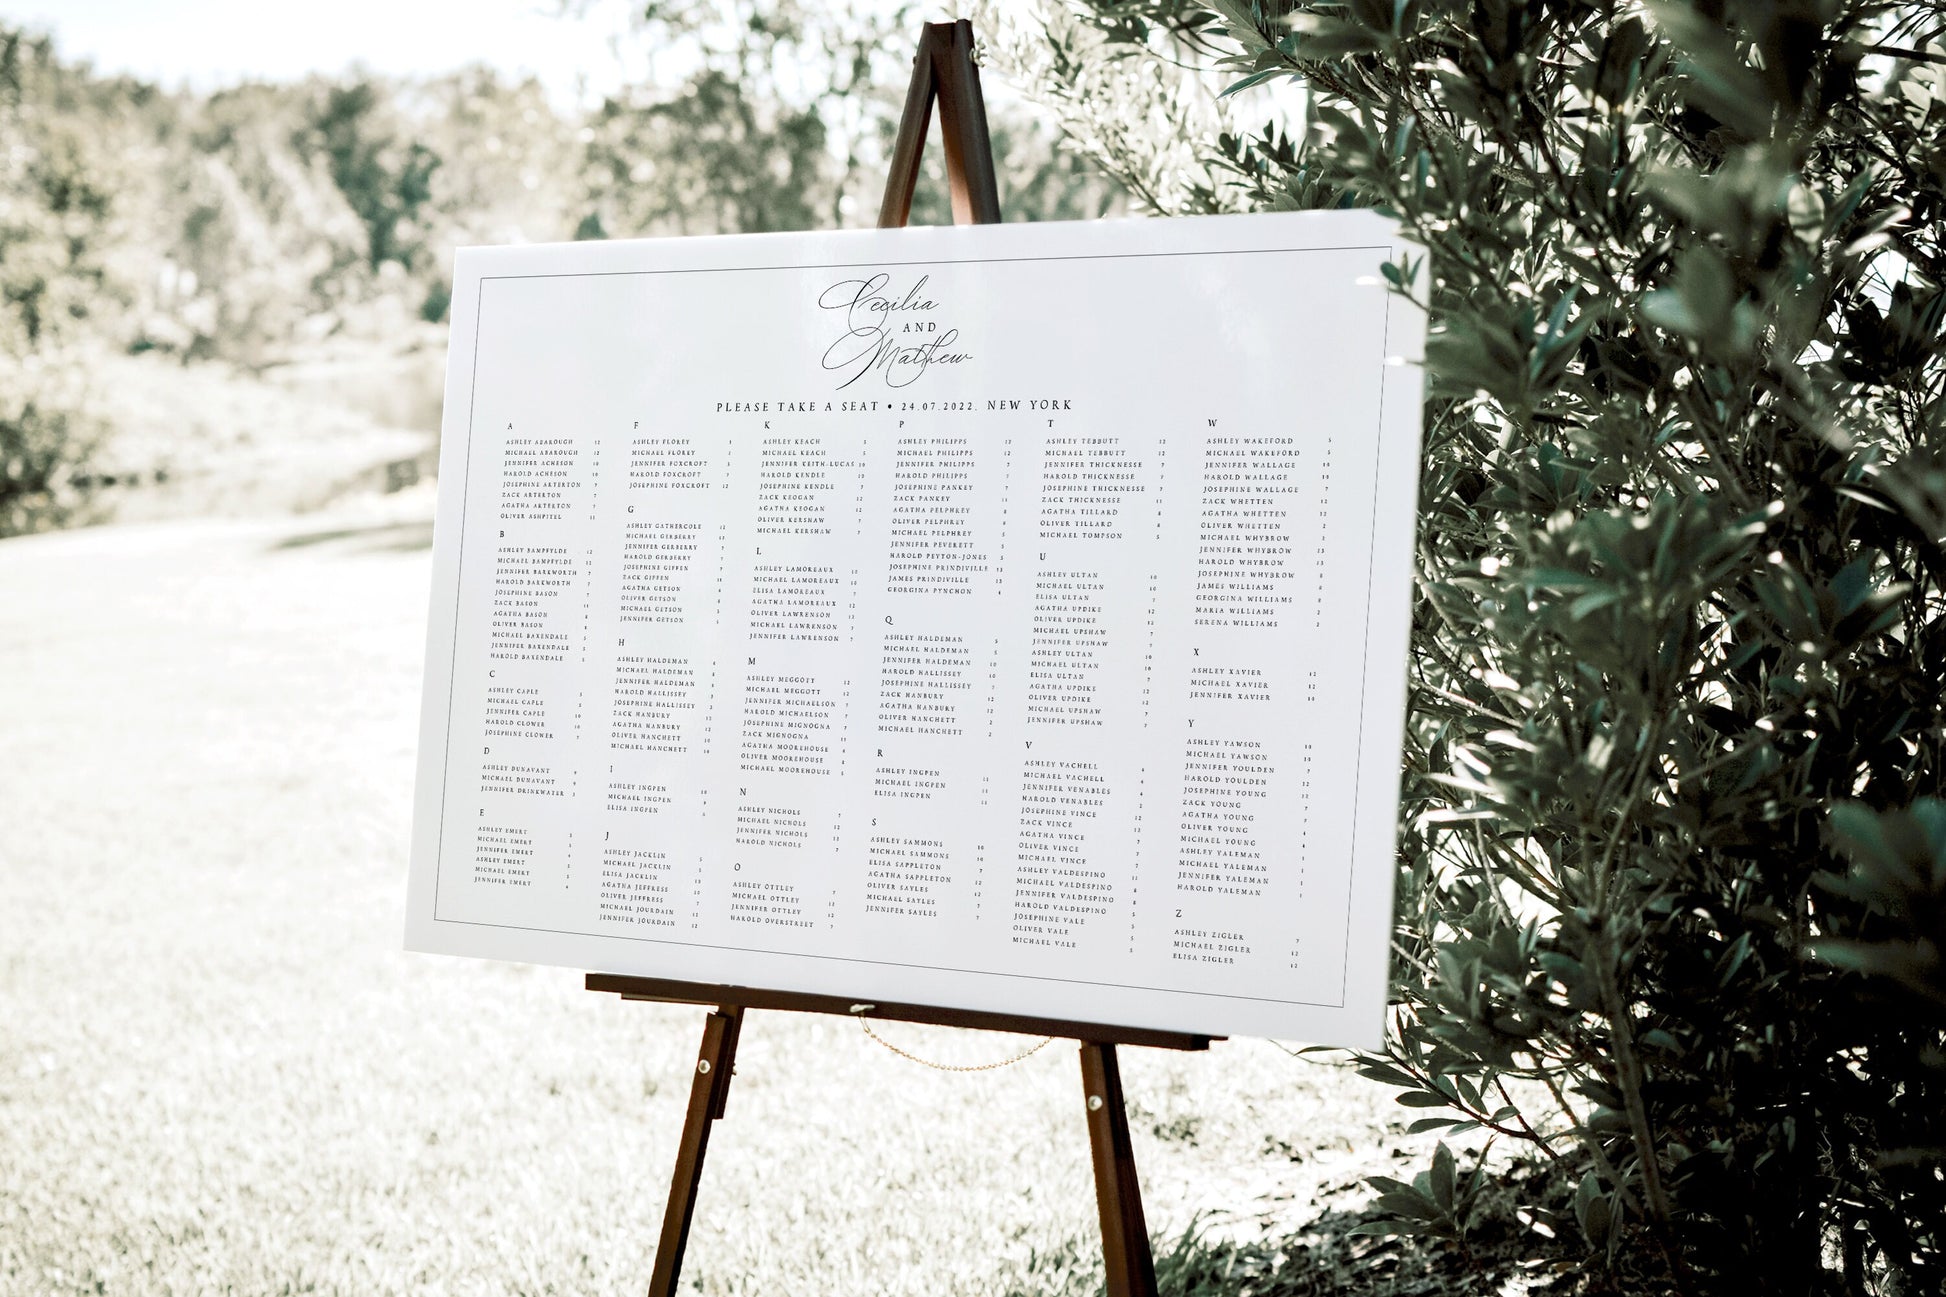 Cecilia
AND
Mathew
PLEASE TAKE A SEAT • 24.07.2022. NEW YORK
A
ASHLEY ABAROUGH 12
MICHAEL ABAROUGH 12
JENNIFER ACHESON 10
HAROLD ACHESON 10
JOSEPHINE ARTERTON 7
ZACK ARTERTON 7
AGATHA ARTERTON 7
OLIVER ASHPITEL 11
B
ASHLEY BAMPFYLDE 12
MICHAEL BAMPFYLDE 12
JENNIFER BARKWORTH 7
HAROLD BARKWORTH 7
JOSEPHINE BASON 7
ZACK BASON 11
AGATHA BASON 8
OLIVER BASON 8
MICHAEL BAXENDALE 5
JENNIFER BAXENDALE 5
HAROLD BAXENDALE 5
C
ASHLEY CAPLE 5
MICHAEL CAPLE 5
JENNIFER CAPLE 10
HAROLD CLOWER 10
JOSEPHINE CLOWER 7
D
ASHLEY DUNAVANT
MICHAEL DUNAVANT
JENNIFER DRINKWATER
E
ASHLEY EMERT
MICHAEL EMERT
JENNIFER EMERT
ASHLEY EMERT
MICHAEL EMERT
JENNIFER EMERT
F
ASHLEY FLOREY
MICHAEL FLOREY
JENNIFER FOXCROFT
HAROLD FOXCROFT 7
JOSEPHINE FOXCROFT 12
G
ASHLEY GATHERCOLE 12
MICHAEL GERBERRY
JENNIFER GERBERRY 7
HAROLD GERBERRY 7
JOSEPHINE GIFFEN 7
ZACK GIFFEN 11
AGATHA GETSON
OLIVER GETSON
MICHAEL GETSON
JENNIFER GETSON
H
ASHLEY HALDEMAN
MICHAEL HALDEMAN
JENNIFER HALDEMAN
HAROLD HALLISSEY
JOSEPHINE HALLISSEY
ZACK HANBURY 12
AGATHA HANBURY 12
OLIVER HANCHETT 10
MICHAEL HANCHETT 10
I
ASHLEY INGPEN 10
MICHAEL INGPEN
ELISA INGPEN
J
ASHLEY JACKLIN 5
MICHAEL JACKLIN
ELISA JACKLIN
AGATHA JEFFRESS 10
OLIVER JEFFRESS 7
MICHAEL JOURDAIN 12
JENNIFER JOURDAIN 12
K
ASHLEY KEACH 5
MICHAEL KEACH 5
JENNIFER KEITH-LUCAS 10
HAROLD KENDLE 10
JOSEPHINE KENDLE 7
ZACK KEOGAN 12
AGATHA KEOGAN 12
OLIVER KERSHAW 7
MICHAEL KERSHAW 7
L
ASHLEY LAMOREAUX 10
MICHAEL LAMOREAUX 10
ELISA LAMOREAUX 7
AGATHA LAMOREAUX 12
OLIVER LAWRENSON 12
MICHAEL LAWRENSON 7
JENNIFER LAWRENSON 7
M
ASHLEY MEGGOTT 12
MICHAEL MEGGOTT 12
JENNIFER MICHAELSON 7
HAROLD MICHAELSON 7
JOSEPHINE MIGNOGNA 7
ZACK MIGNOGNA 11
AGATHA MOOREHOUSE 8
OLIVER MOOREHOUSE 8
MICHAEL MOOREHOUSE 5
N
ASHLEY NICHOLS 7
MICHAEL NICHOLS 12
JENNIFER NICHOLS 12
HAROLD NICHOLS 7
O
ASHLEY OTTLEY 7
MICHAEL OTTLEY 12
JENNIFER OTTLEY 12
HAROLD OVERSTREET 7
P
ASHLEY PHILIPPS 12
MICHAEL PHILIPPS 12
JENNIFER PHILIPPS 7
HAROLD PHILIPPS 7
JOSEPHINE PANKEY 7
ZACK PANKEY 11
AGATHA PELPHREY 8
OLIVER PELPHREY 8
MICHAEL PELPHREY 5
JENNIFER PEVERETT 5
HAROLD PEYTON-JONES 5
JOSEPHINE PRINDIVILLE 13
JAMES PRINDIVILLE 13
GEORGINA PYNCHON 4
Q
ASHLEY HALDEMAN 5
MICHAEL HALDEMAN 5
JENNIFER HALDEMAN 10
HAROLD HALLISSEY 10
JOSEPHINE HALLISSEY 7
ZACK HANBURY 12
AGATHA HANBURY 12
OLIVER HANCHETT 2
MICHAEL HANCHETT 2
R
ASHLEY INGPEN 11
MICHAEL INGPEN 11
ELISA INGPEN 11
S
ASHLEY SAMMONS 10
MICHAEL SAMMONS 10
ELISA SAPPLETON 7
AGATHA SAPPLETON 12
OLIVER SAYLES 12
MICHAEL SAYLES 7
JENNIFER SAYLES 7
T
ASHLEY TEBBUTT 12
MICHAEL TEBBUTT 12
JENNIFER THICKNESSE 7
HAROLD THICKNESSE 7
JOSEPHINE THICKNESSE 7
ZACK THICKNESSE 11
AGATHA TILLARD 8
OLIVER TILLARD 8
MICHAEL TOMPSON 5
U
ASHLEY ULTAN 10
MICHAEL ULTAN 10
ELISA ULTAN 7
AGATHA UPDIKE 12
OLIVER UPDIKE 12
MICHAEL UPSHAW 7
JENNIFER UPSHAW 7
ASHLEY ULTAN 10
MICHAEL ULTAN 10
ELISA ULTAN 7
AGATHA UPDIKE 12
OLIVER UPDIKE 12
MICHAEL UPSHAW 7
JENNIFER UPSHAW 7
V
ASHLEY VACHELL 6
MICHAEL VACHELL 6
JENNIFER VENABLES 4
HAROLD VENABLES 2
JOSEPHINE VINCE 12
ZACK VINCE 12
AGATHA VINCE 12
OLIVER VINCE 7
MICHAEL VINCE 7
ASHLEY VALDESPINO 11
MICHAEL VALDESPINO 8
JENNIFER VALDESPINO 8
HAROLD VALDESPINO 5
JOSEPHINE VALE 5
OLIVER VALE 5
MICHAEL VALE 5
W
ASHLEY WAKEFORD 5
MICHAEL WAKEFORD 5
JENNIFER WALLAGE 10
HAROLD WALLAGE 10
JOSEPHINE WALLAGE 7
ZACK WHETTEN 12
AGATHA WHETTEN 12
OLIVER WHETTEN 2
MICHAEL WHYBROW 2
JENNIFER WHYBROW 13
HAROLD WHYBROW 13
JOSEPHINE WHYBROW 8
JAMES WILLIAMS 8
GEORGINA WILLIAMS 8
MARIA WILLIAMS 2
SERENA WILLIAMS 2
X
ASHLEY XAVIER 12
MICHAEL XAVIER 12
JENNIFER XAVIER 10
Y
ASHLEY YAWSON 10
MICHAEL YAWSON 10
JENNIFER YOULDEN 7
HAROLD YOULDEN 12
JOSEPHINE YOUNG 12
ZACK YOUNG 7
AGATHA YOUNG 7
OLIVER YOUNG 4
MICHAEL YOUNG 4
ASHLEY YALEMAN 1
MICHAEL YALEMAN 1
JENNIFER YALEMAN 1
HAROLD YALEMAN 1
Z
ASHLEY ZIGLER 7
MICHAEL ZIGLER 12
ELISA ZIGLER 12